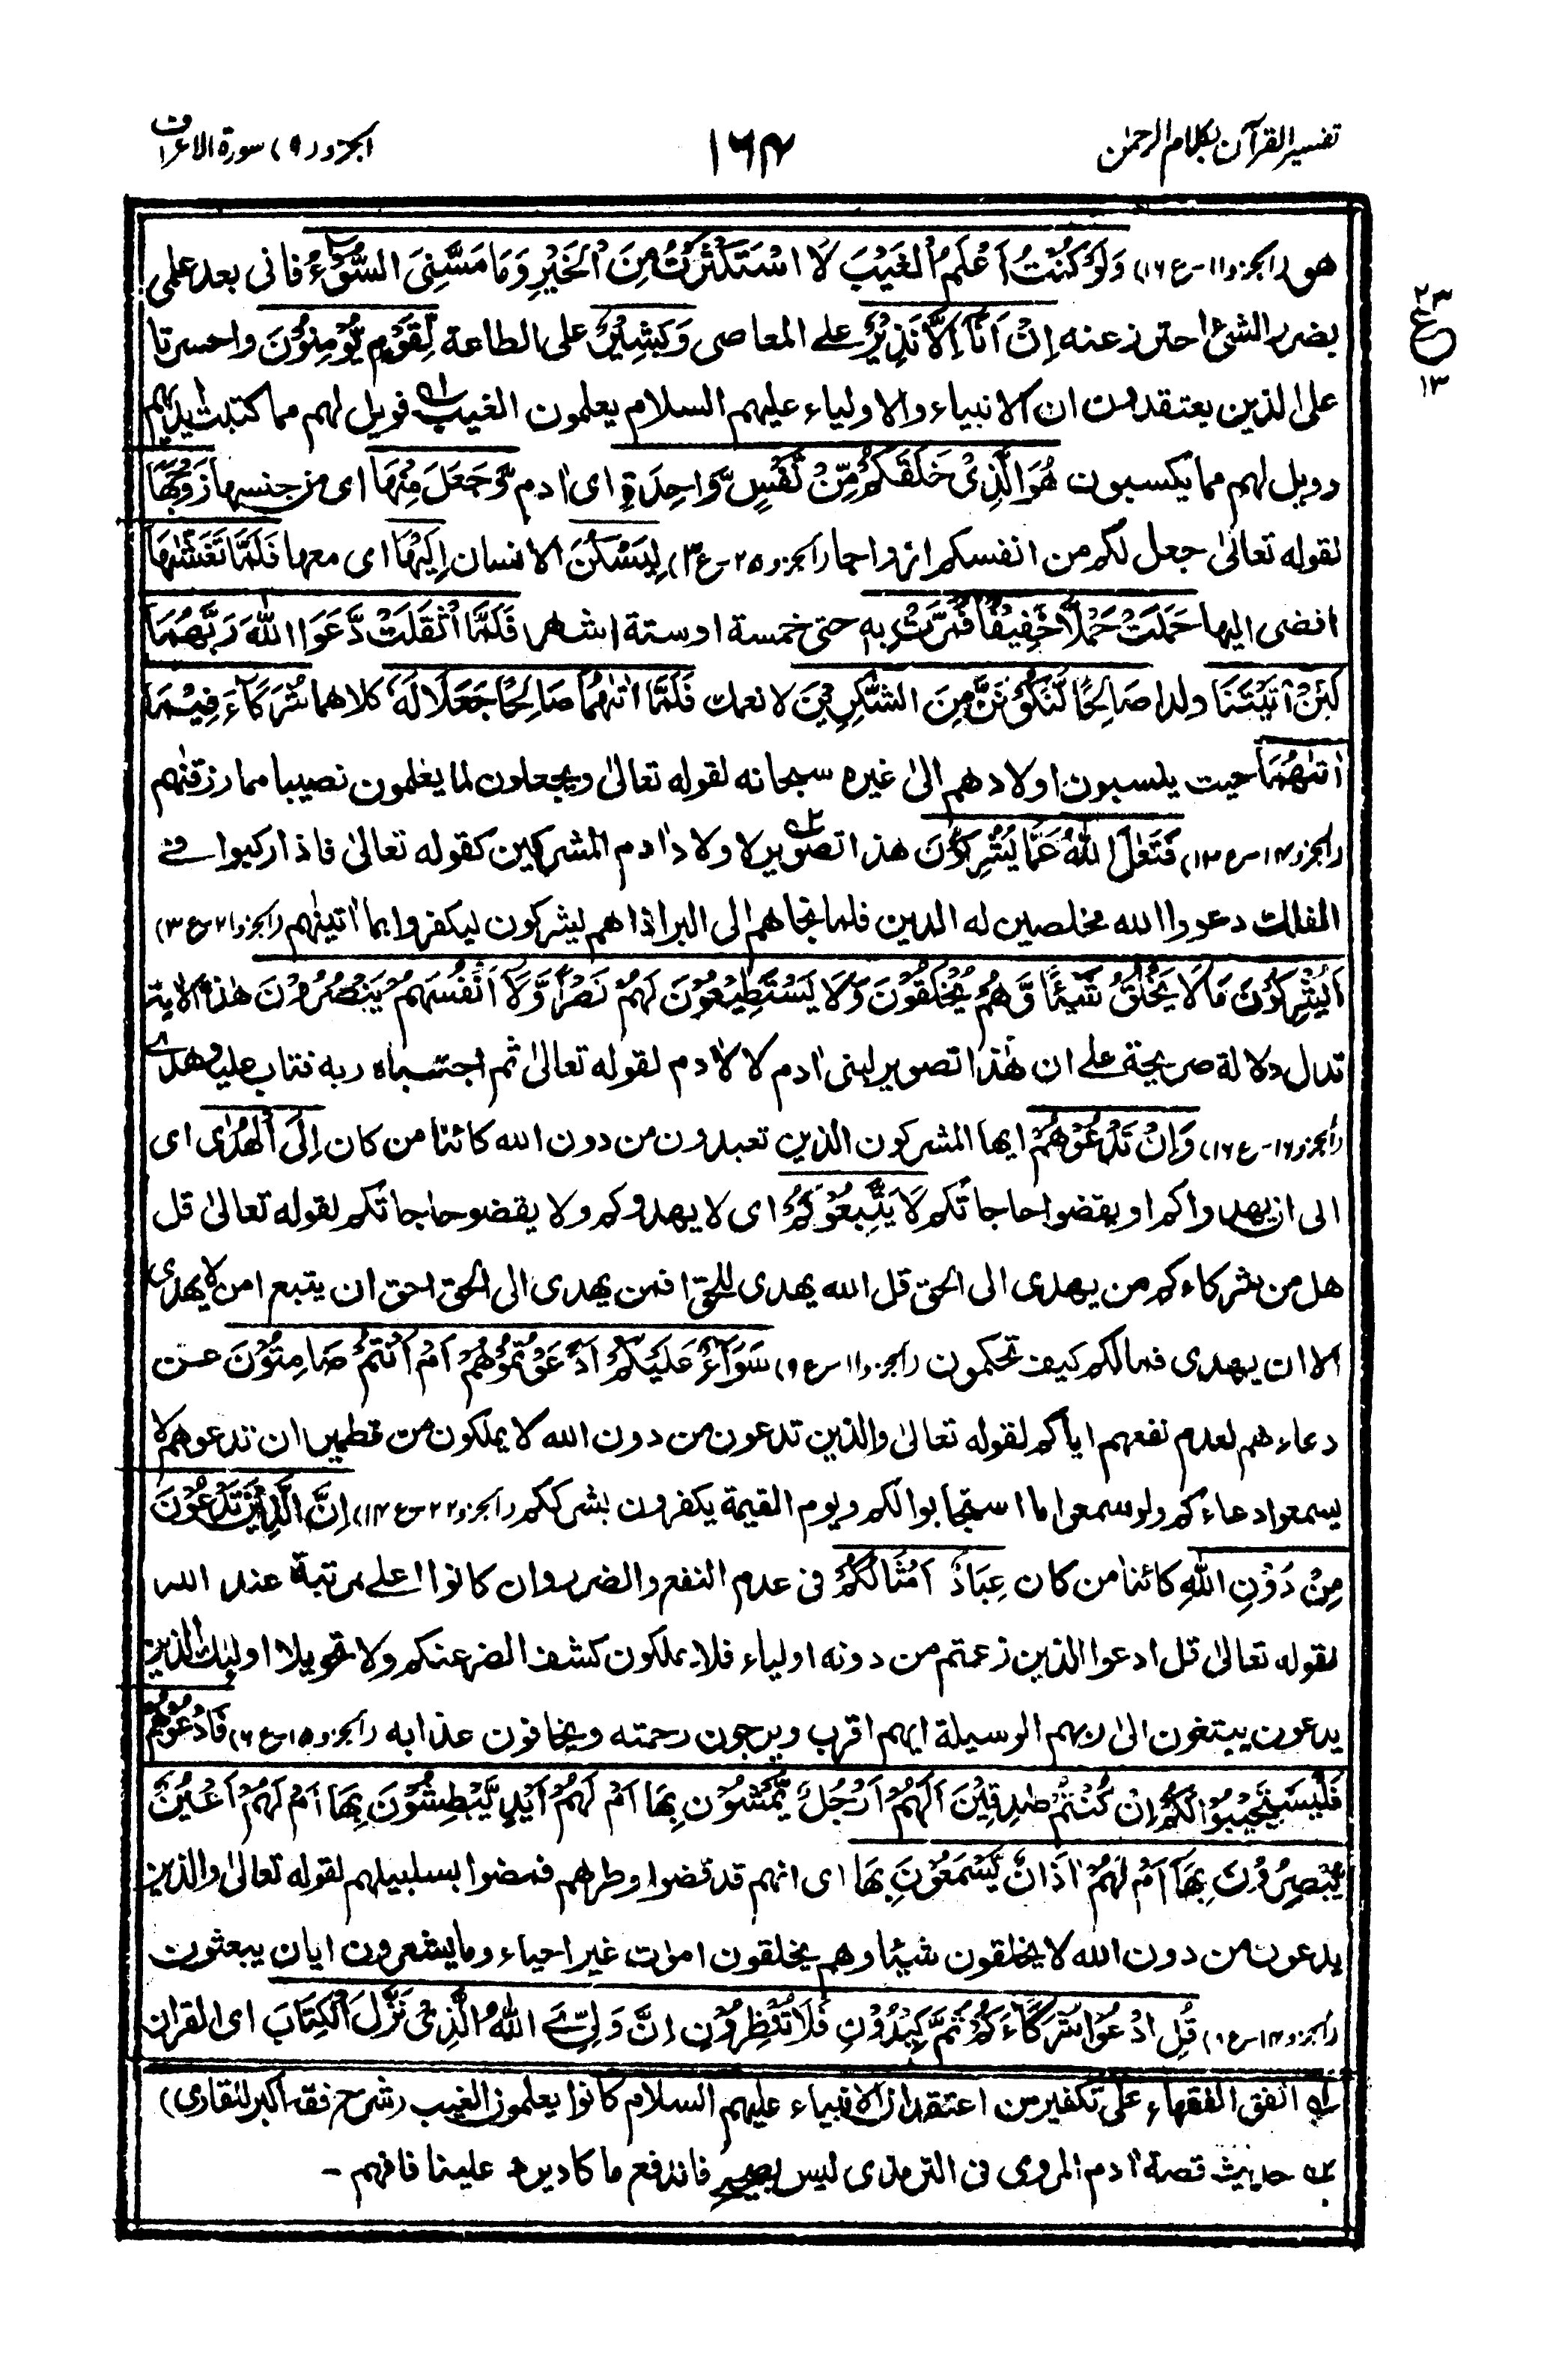 تفسير القرآن بكلام الرحمٰن
١٦٤
الجزو (٩) سورة الاعراف
هو (الجزو ١١-ع ١٦) وَلَوْ كُنْتُ اَعْلَمُ الْغَيْبَ لَا اسْتَكْثَرْتُ مِنَ الْخَيْرِ وَمَا مَسَّنِیَ السُّوْٓءُ فانی بعد علمی
بضرر الشئ احترز عنه اِنْ اَنَا۠ اِلَّا نَذِيْرٌ علے المعاصی وَّبَشِيْرٌ علی الطاعة لِّقَوْمٍ يُّؤْمِنُوْنَ واحسرتا
٢٣
ع
١٣
علی الذين يعتقدون ان الانبياء والاولياء عليهم السلام يعلمون الغيب ١ه فويل لهم مما كتبت ايديهم
وويل لهم مما يكسبون هُوَ الَّذِیْ خَلَقَكُمْ مِّنْ نَّفْسٍ وَّاحِدَةٍ ای اٰدم وَّجَعَلَ مِنْهَا ای من جنسها زَوْجَهَا
لقوله تعالیٰ جعل لكم من انفسكم ازواجا (الجزو ٢٥-ع ٣) لِيَسْكُنَ الانسان اِلَيْهَا ای معها فَلَمَّا تَغَشّٰهَا
افضی اليها حَمَلَتْ حَمْلًا خَفِيْفًا فَمَرَّتْ بِهٖ حتی خمسة او ستة اشهر فَلَمَّآ اَثْقَلَتْ دَّعَوَا اللّٰهَ رَبَّهُمَا
لَئِنْ اٰتَيْتَنَا ولدا صَالِحًا لَّنَكُوْنَنَّ مِنَ الشّٰكِرِيْنَ لانعمك فَلَمَّآ اٰتٰهُمَا صَالِحًا جَعَلَا لَهٗ كلاهما شُرَكَآءَ فِيْمَآ
اٰتٰهُمَا حيث ينسبون اولادهم الیٰ غيره سبحانه لقوله تعالیٰ ويجعلون لما يعلمون نصيبا مما رزقنٰهم
(الجزو ١٤-ع ١٣) فَتَعٰلَی اللّٰهُ عَمَّا يُشْرِكُوْنَ هذا تصوير ٢ه لاولاد اٰدم المشركين كقوله تعالیٰ فاذا ركبوا فے
الفلك دعووا الله مخلصين له الدين فلما نجاهم الی البر اذا هم يشركون ليكفروا بما اٰتينٰهم (الجزو ٢١-ع ٣)
اَيُشْرِكُوْنَ مَا لَا يَخْلُقُ شَيْئًا وَّهُمْ يُخْلَقُوْنَ وَلَا يَسْتَطِيْعُوْنَ لَهُمْ نَصْرًا وَّلَآ اَنْفُسَهُمْ يَنْصُرُوْنَ هٰذه الاٰية
تدل دلالة صريحة علے ان هٰذا تصوير لبنی اٰدم لا لاٰدم لقوله تعالیٰ ثم اجتباه ربه فتاب عليه وهدے
(الجزو ١٦-ع ١٦) وَاِنْ تَدْعُوْهُمْ ايها المشركون الذين تعبدون من دون الله كائنا من كان اِلَی الْهُدٰی ای
الی ان يهدواكم او يقضوا حاجاتكم لَا يَتَّبِعُوْكُمْ ای لا يهدوكم ولا يقضو حاجاتكم لقوله تعالیٰ قل
هل من شركاءكم من يهدی الی الحق قل الله يهدی للحق افمن يهدی الی الحق احق ان يتبع امن لا يهدی
الا ان يهدی فمالكم كيف تحكمون (الجزو ١١-ع ٩) سَوَآءٌ عَلَيْكُمْ اَدَعَوْتُمُوْهُمْ اَمْ اَنْتُمْ صَامِتُوْنَ عن
دعاءهم لعدم نفعهم اياكم لقوله تعالیٰ والذين تدعون من دون الله لا يملكون من قطمير ان تدعوهم لا
يسمعوا دعاءكم ولو سمعوا ما استجابوا لكم ويوم القيمة يكفرون بشرككم (الجزو ٢٢-ع ١٤) اِنَّ الَّذِيْنَ تَدْعُوْنَ
مِنْ دُوْنِ اللّٰهِ كائنا من كان عِبَادٌ اَمْثَالُكُمْ فی عدم النفع والضر وان كانوا اعلے مرتبة عند الله
لقوله تعالیٰ قل ادعوا الذين زعمتم من دونه اولياء فلا يملكون كشف الضر عنكم ولا تحويلا اولٰئك الذين
يدعون يبتغون الیٰ ربهم الوسيلة ايهم اقرب ويرجون رحمته ويخافون عذابه (الجزو ١٥-ع ٦) فَادْعُوْهُمْ
فَلْيَسْتَجِيْبُوْا لَكُمْ اِنْ كُنْتُمْ صٰدِقِيْنَ اَلَهُمْ اَرْجُلٌ يَّمْشُوْنَ بِهَا اَمْ لَهُمْ اَيْدٍ يَّبْطِشُوْنَ بِهَا اَمْ لَهُمْ اَعْيُنٌ
يُّبْصِرُوْنَ بِهَآ اَمْ لَهُمْ اٰذَانٌ يَّسْمَعُوْنَ بِهَا ای انهم قد قضوا وطرهم فمضوا بسلبيلهم لقوله تعالیٰ والذين
يدعون من دون الله لا يخلقون شيئا وهم يخلقون اموٰت غير احياء وما يشعرون ايان يبعثون
(الجزو ١٤-ع ١٠) قُلِ ادْعُوْا شُرَكَآءَكُمْ ثُمَّ كِيْدُوْنِ فَلَا تُنْظِرُوْنِ اِنَّ وَلِیِّ ےَ اللّٰهُ الَّذِیْ نَزَّلَ الْكِتَابَ ای القراٰن
١ه اتفق الفقهاء علی تكفير من اعتقد ان الانبياء عليهم السلام كانوا يعلمون الغيب (شرح فقه اكبر للقاری)
٢ه حديث قصة اٰدم المروی فی الترمذی ليس بصحيح فاندفع ما كاد يرد علينا فافهم -